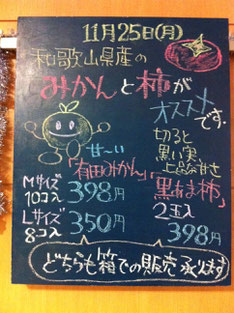 11月25日(月)
和歌山県産の
みかんと柿が
オススメ
です。
甘〜い
「有田みかん」
Mサイズ
10コ入 398円
Lサイズ
8コ入 350円
切ると
黒い実
上品な甘さ
「黒あま柿」
2玉入
398円
どちらも箱での販売承ります